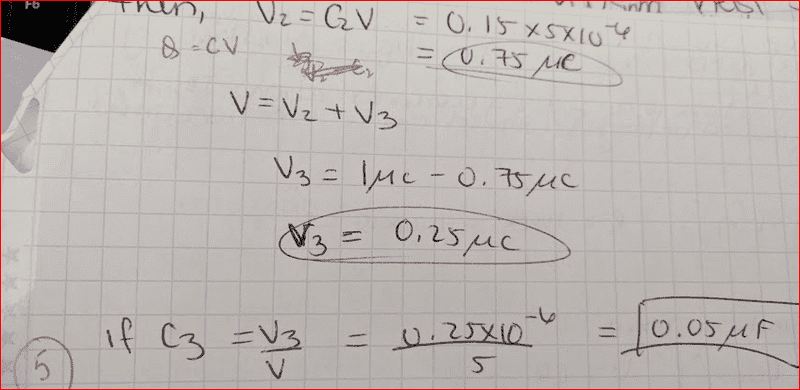 F6
Then, V₂ = C₂V = 0.15 x 5 x 10⁻⁶
Q = CV = 0.75 μc
V = V₂ + V₃
V₃ = 1μc - 0.75μc
V₃ = 0.25μc
5 if C₃ = V₃/V = 0.25x10⁻⁶/5 = 0.05μF